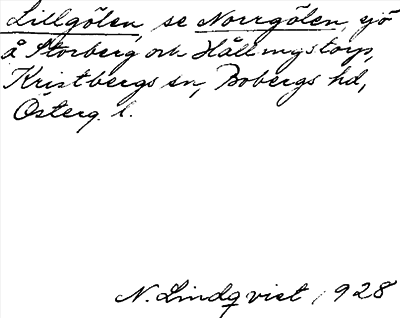 Lillgölen, se Norrgölen, sjö
å Storberg och Hällmystorp,
Kristbergs sn, Bobergs hd,
Österg. l.
N. Lindqvist 1928